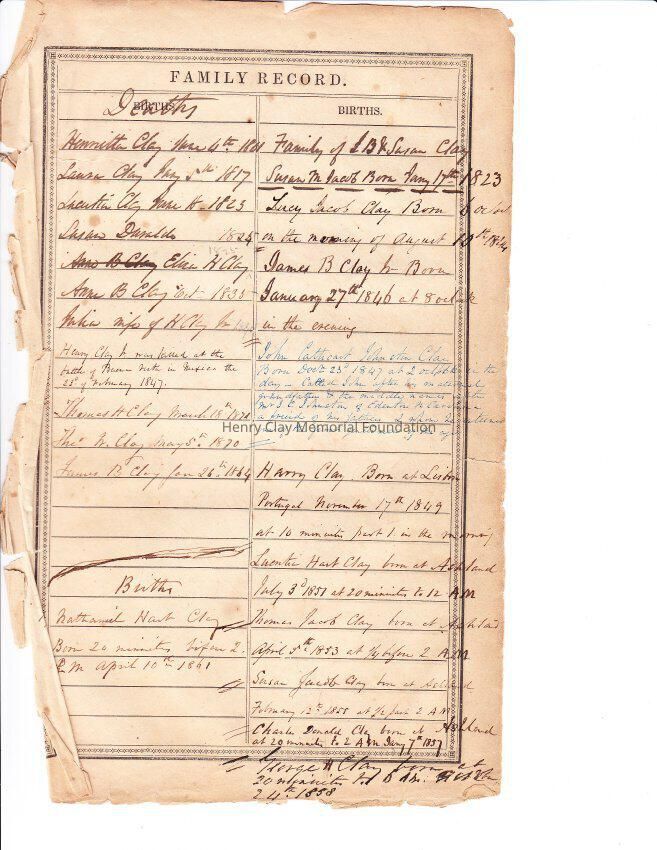 FAMILY RECORD.
BIRTHS.
Deaths
Henrietta Clay June 4th 1801
Laura Clay Jany 5th 1817
Lucretia Clay June 18 1823
Susan Duralde 1825
Anne B Clay Eliza H Clay
Anne B Clay Oct 1835
Julia wife of H Clay Jr
Henry Clay Jr was killed at the
battle of Buena Vista in Mexico the
23d of February 1847.
Thomas H Clay March 18th
Theo W. Clay May 5th 1870
James B Clay Jan 26th 1864
Births
Nathaniel Hart Clay
Born 20 minutes before 2.
P.M April 10th 1861
BIRTHS.
Family of J B & Susan Clay
Susan M Jacob Born Jany 17th 1823
Lucy Jacob Clay Born 6 oclock
on the morning of August 1844
James B Clay Jr Born
January 27th 1846 at 8 oclock
in the evening
John Cathcart Johnston Clay
Born Dect 23d 1847 at 2 oclock in the
day - Called John after his maternal
grandfather & the middle names after
Mr J. C. Johnston of Edenton N. Carolina
a friend of my father
Henry Clay Memorial Foundation
Harry Clay. Born at Lisbon
Portugal November 17th 1849
at 10 minutes past 1. in the morning
Lucretia Hart Clay born at Ashland
July 3d 1851 at 20 minutes to 12 A M
Thomas Jacob Clay born at Ashland
April 5th 1853 at 1/4 before 2 A.M
Susan Jacob Clay born at Ashland
February 12th 1855 at 1/2 past 2 A M
Charles Donald Clay born at Ashland
at 20 minutes to 2 A M Jany 7th 1857
George H Clay born at
20 minutes to 6
24th 1858